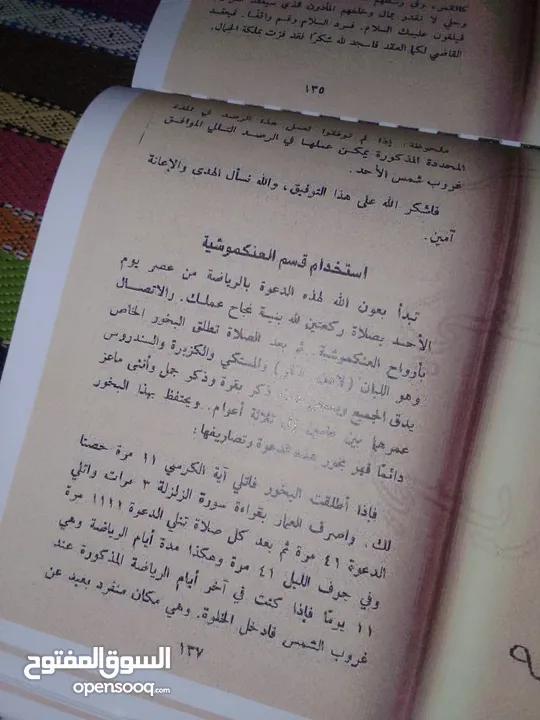 القاضي لكما العقد فاسجد لله شكرًا فقد فزت بملكة الجبال.
١٣٥
ملحوظة: إذا لم توفقوا لعمل هذه الرصد في المدة
المحددة المذكورة يمكن عملها في الرصد التالي الموافق
غروب شمس الأحد.
فاشكر الله على هذا التوفيق، والله نسأل الهدى والإعانة
آمين.
استخدام قسم العنكموشية
تبدأ بعون الله لهذه الدعوة بالرياضة من عصر يوم
الأحد بصلاة ركعتين لله بنية نجاح عملك. والاتصال
بأرواح العنكموشية. ثم بعد الصلاة تطلق البخور الخاص
وهو اللبان والمستكي والكزبرة والسندروس
يدق الجميع ذكر بقرة وذكر جمل وأنثى ماعز
عمرهما بين ثلاثة أعوام. ويحتفظ بهذا البخور
دائمًا فهو بخور هذه الدعوة وتصاريفها:
فإذا أطلقت البخور فاتلي آية الكرسي ١١ مرة حصنا
لك. واصرف العمار بقراءة سورة الزلزلة ٣ مرات واتلي
الدعوة ٤١ مرة ثم بعد كل صلاة تتلى الدعوة ١١١١ مرة
وفي جوف الليل ٤١ مرة وهكذا مدة أيام الرياضة وهي
١١ يومًا فإذا كنت في آخر أيام الرياضة المذكورة عند
غروب الشمس فادخل الخلوة. وهي مكان منفرد بعيد عن
١٣٧
السوق المفتوح
opensooq.com